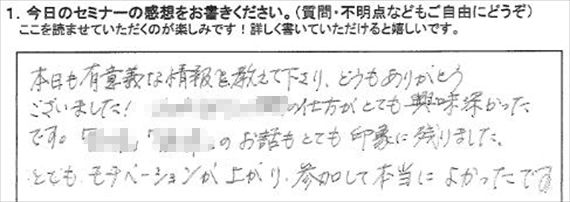 1. 今日のセミナーの感想をお書きください。(質問・不明点などもご自由にどうぞ)
ここを読ませていただくのが楽しみです！詳しく書いていただけると嬉しいです。
本日も有意義な情報を教えて下さり、どうもありがとう
ございました！ の仕方がとても興味深かった
です。「 」「 」のお話もとても印象に残りました。
とても、モチベーションが上がり、参加して本当によかったです